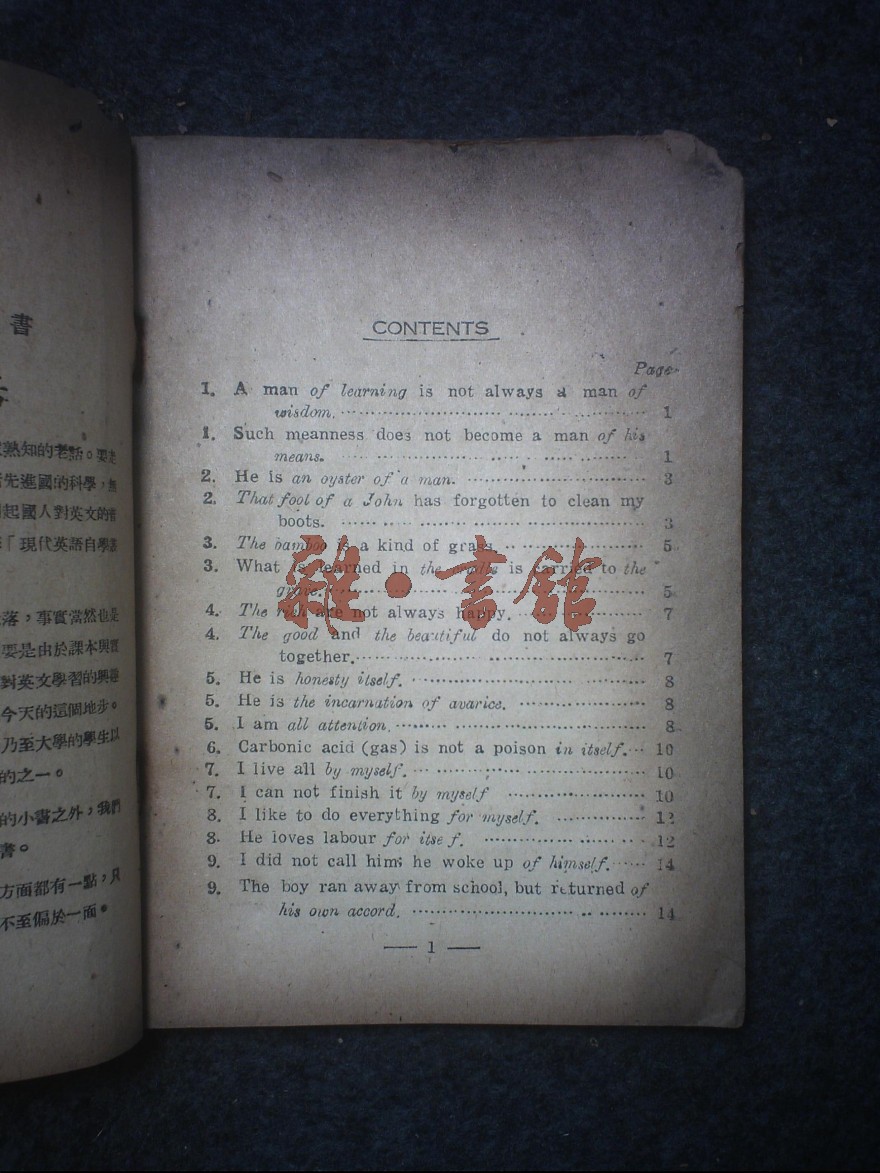 書
熟知的老話。要走
先進國的科學,無
起國人對英文的
「現代英語自學
落,事實當然也是
要是由於課本與實
對英文學習的興趣
今天的這個地步。
乃至大學的學生以
的之一。
的小書之外,我們
書。
方面都有一點,只
不至偏於一面。
CONTENTS
Page
1. A man of learning is not always a man of
wisdom. 1
1. Such meanness does not become a man of his
means. 1
2. He is an oyster of a man. 3
2. That fool of a John has forgotten to clean my
boots. 3
3. The bamboo is a kind of grass. 5
3. What is learned in the cradle is carried to the
grave. 5
4. The rich are not always happy. 7
4. The good and the beautiful do not always go
together. 7
5. He is honesty itself. 8
5. He is the incarnation of avarice. 8
5. I am all attention. 8
6. Carbonic acid (gas) is not a poison in itself. 10
7. I live all by myself. 10
7. I can not finish it by myself 10
8. I like to do everything for myself. 12
8. He loves labour for itse f. 12
9. I did not call him; he woke up of himself. 14
9. The boy ran away from school, but returned of
his own accord. 14
— 1 —
雜·書館